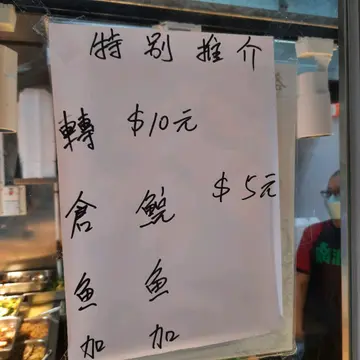 特别推介
轉倉魚加
$10元
鯇魚加
$5元